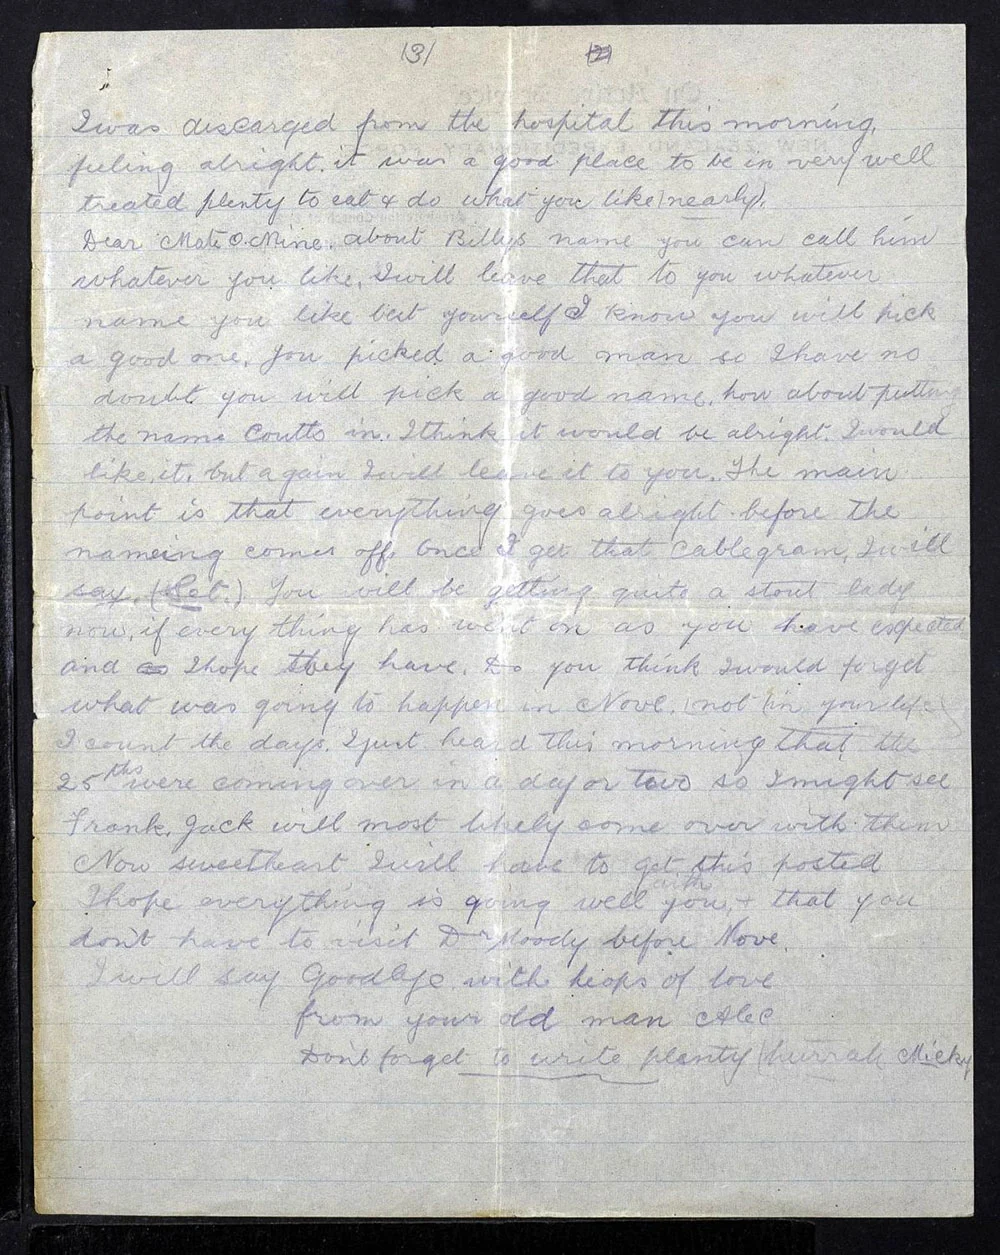 (3)
I was discarged from the hospital this morning,
feeling alright. it was a good place to be in very well
treated plenty to eat & do what you like (nearly).
Dear Mate O. Mine, about Billys name you can call him
whatever you like, I will leave that to you whatever
name you like best yourself I know you will pick
a good one, you picked a good man so I have no
doubt you will pick a good name, how about putting
the name Coutts in. I think it would be alright. I would
like it, but again I will leave it to you. The main
point is that everything goes alright before the
nameing comes off, once I get that cablegram, I will
say. ( ) You will be getting quite a stout lady
now, if every thing has went on as you have expected
and I hope they have. Do you think I would forget
what was going to happen in Nove. not (in your life)
I count the days. I just heard this morning that the
25ths were coming over in a day or two so I might see
Frank. Jack will most likely come over with them
Now sweetheart I will have to get this posted
I hope everything is going well with you, + that you
don't have to visit Dr Moody before Nove.
I will say Goodbye with heaps of love
from your old man Alec
Dont forget to write plenty (hurrah Micky